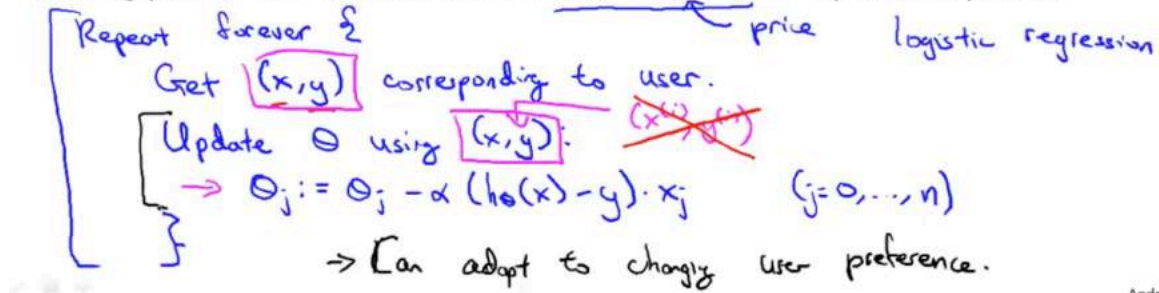 price logistic regression
Repeat forever {
Get (x,y) corresponding to user.
Update θ using (x,y): (x^(i), y^(i))
→ θ_j := θ_j - α (h_θ(x) - y) · x_j (j=0,..., n)
}
→ Can adapt to changing user preference.